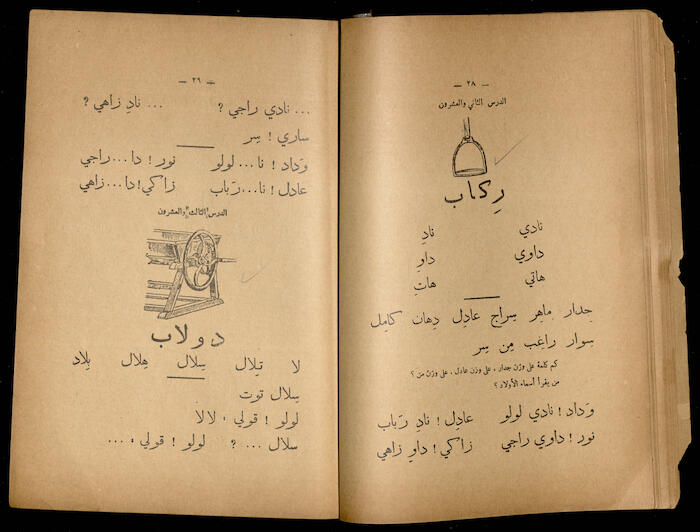 — ٢٨ —
الدرس الثاني والعشرون
رِكاب
نادي نادِ
داوي داوِ
هاتي هاتِ
جِدار ماهِر سِراج عادِل دِهان كامِل
سِوار راغِب مِن سِر
كم كلمة على وزن جدار ، على وزن عادل ، على وزن من ؟
من يقرأ أسماء الأولاد ؟
وَداد ! نادي لولو عادِل ! نادِ رَباب
نور ! داوي راجي زاكي ! داوِ زاهي
— ٢٩ —
... نادي راجي ؟ ... نادِ زاهي ؟
ساري ! سِر
وَداد ! نا... لولو نور ! دا... راجي
عادِل ! نا... رَباب زاكي ! دا... زاهي
الدرس الثالث والعشرون
دولاب
لا تِلال سِلال هِلال بِلاد
سِلال توت
لولو ! قولي ، لالا
سلال ... ؟ لولو ! قولي ، ...